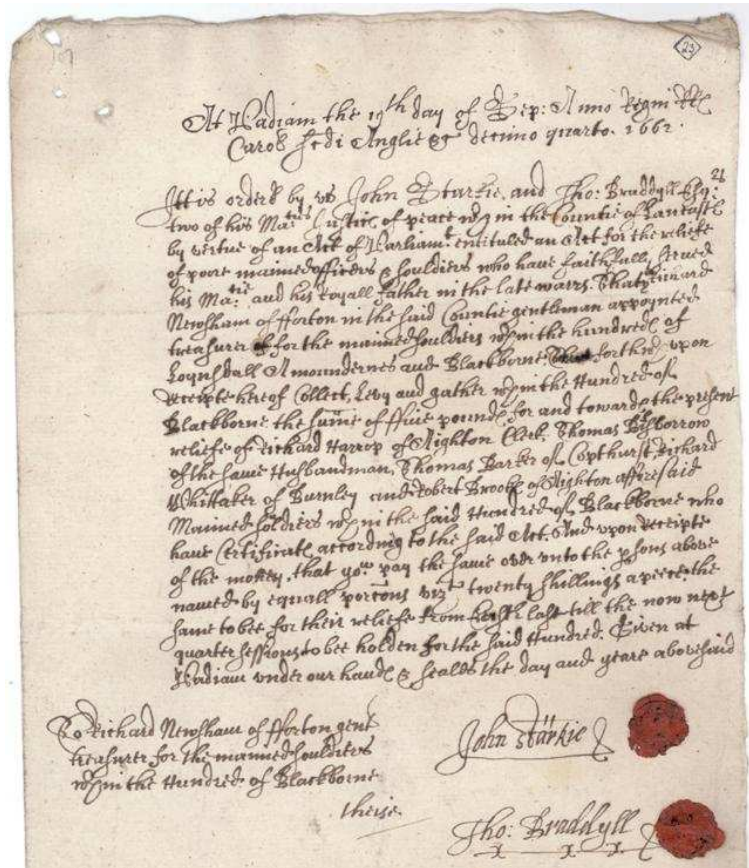 23
At Padiam the 19th day of Sep: Anno Regni RRs
Caroli scdi Anglie &c decimo quarto. 1662.
Itt is orderd by us John Starkie, and Tho: Braddyll Esqrs
two of his Maties Justices of peace wthin the Countie of Lancaster
by vertue of an Act of Parliamt entituled an Act for the reliefe
of poore maimed officers & souldiers who have faithfully served
his Matie and his Royall father in the late warrs. That Richard
Newsham of fforton in the said Countie gentleman appointed
treasurer for the maimed souldiers wthin the hundreds of
Loynsdall Amoundernes and Blackborne forthwth upon
receipte hereof Collect, Levy and gather wthin the Hundred of
Blackborne the sume of ffive pounds for and towards the present
reliefe of Richard Harrop of Aighton Clerk. Thomas
of the same Husbandman, Thomas Barker of Copthurst, Richard
Whittaker of Burnley and Robert Brooks of Aighton afforesaid
Maimed soldiers wthin the said Hundred of Blackborne who
have Certificats according to the said Act, And upon receipte
of the money, that you pay the same over unto the psons above
named by equall porcons vizt twenty shillings a peece, the
same to bee for their reliefe from last till the now next
quarter sessions to bee holden for the said Hundred. Given at
Padiam under our hands & sealls the day and yeare abovesaid
To Richard Newsham of fforton gent
treasurer for the maimed souldiers
wthin the Hundred of Blackborne
theise.
John Starkie
Tho: Braddyll